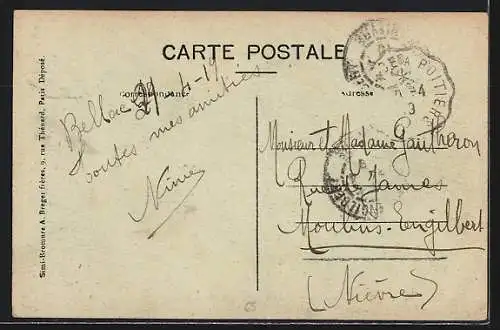 CARTE POSTALE
Correspondance
Adresse
Bellac 29-4-19
toutes mes amitiés
Ninie
Monsieur et Madame Gautheron
Rue
Moulins-Engilbert
(Nièvre)
POITIERS
4
3
Semi-Bromure A. Breger frères, 9, rue Thénard, Paris Déposé.
65